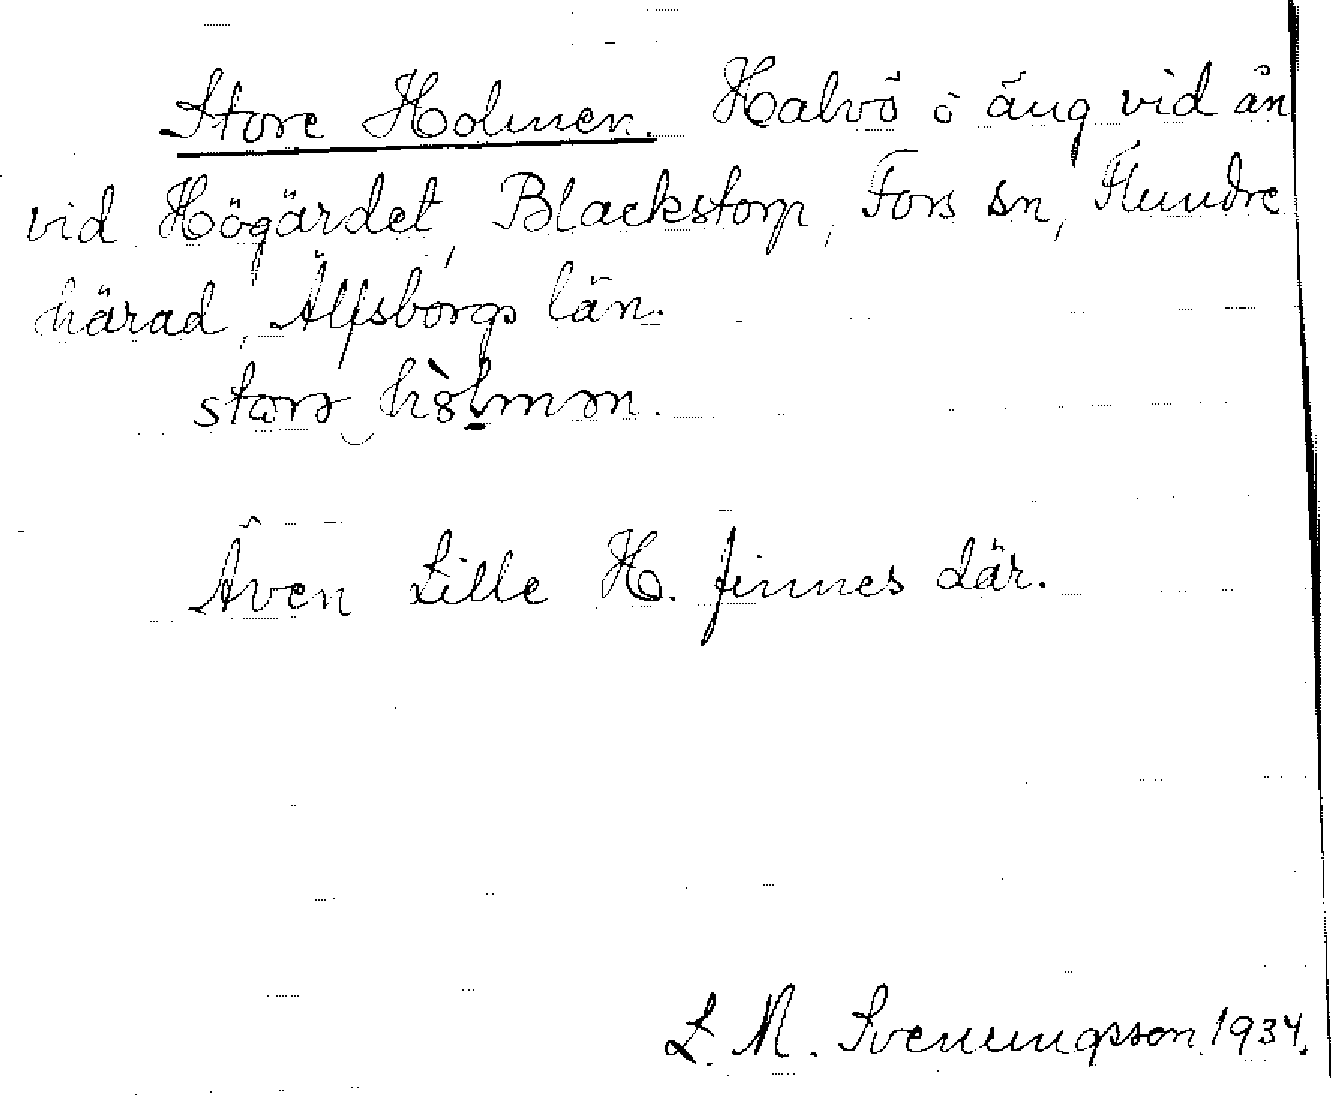 Store Holmen. Halvö o äng vid ån
vid Högärdet, Blackstorp, Fors sn, Flundre
härad, Älfsborgs län.
Även Lille H. finnes där.
L. M. Svenungsson 1934.